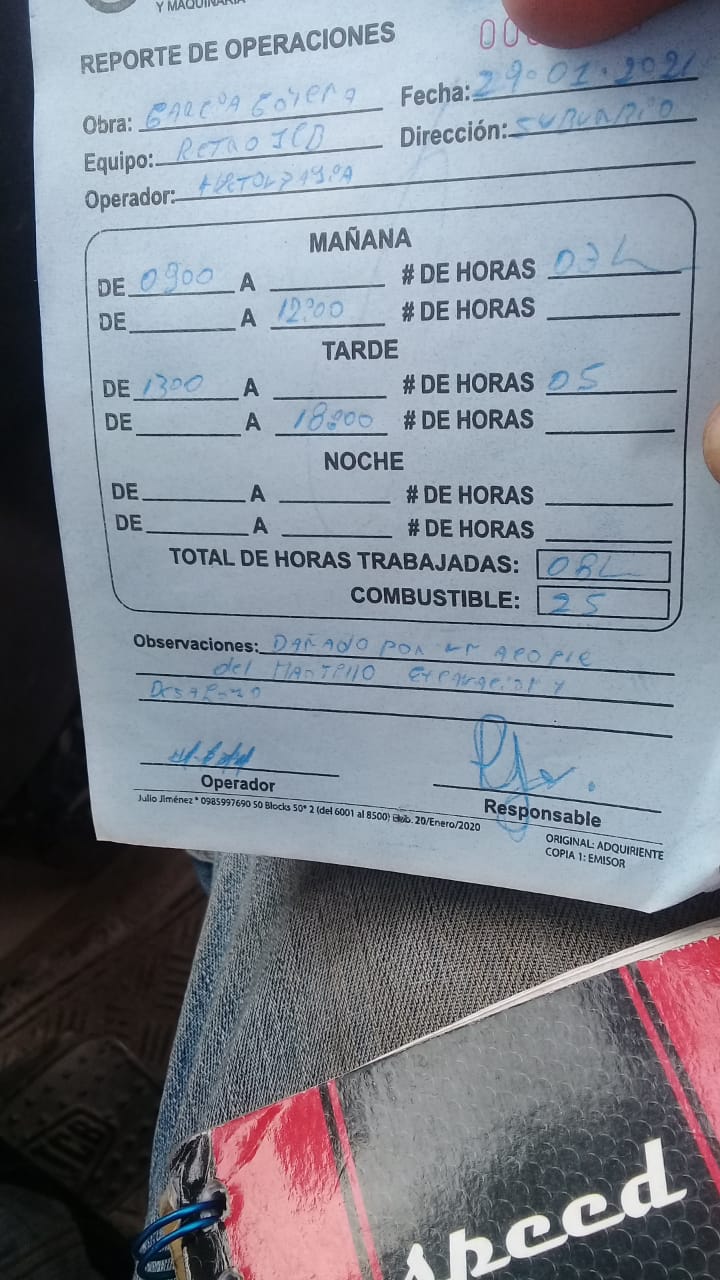 Y MAQUINARIA
REPORTE DE OPERACIONES 00
Obra: GARCIA GOYENA Fecha: 29.01.2021
Equipo: RETRO JCB Dirección: SUBURBIO
Operador:
MAÑANA
DE 0900 A # DE HORAS 03h
DE A 12:00 # DE HORAS
TARDE
DE 1300 A # DE HORAS 05
DE A 18:00 # DE HORAS
NOCHE
DE A # DE HORAS
DE A # DE HORAS
TOTAL DE HORAS TRABAJADAS: 08h
COMBUSTIBLE: 25
Observaciones: DAÑADO POR
del MARTILLO EXCAVACION Y
DESALOJO
Operador
Responsable
Julio Jiménez * 0985997690 50 Blocks 50* 2 (del 6001 al 8500) Elab. 20/Enero/2020
ORIGINAL: ADQUIRIENTE
COPIA 1: EMISOR
JCB
speed